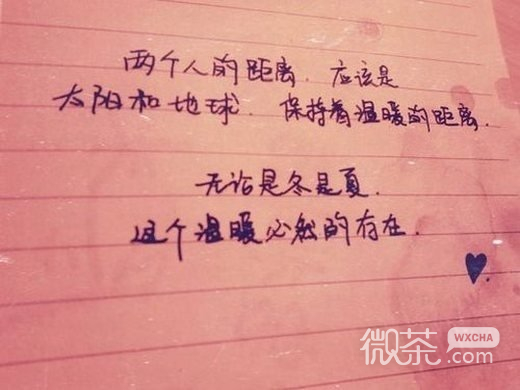 两个人的距离. 应该是
太阳和地球. 保持着温暖的距离.
无论是冬是夏.
这个温暖必然的存在.
微茶
WXCHA
.com